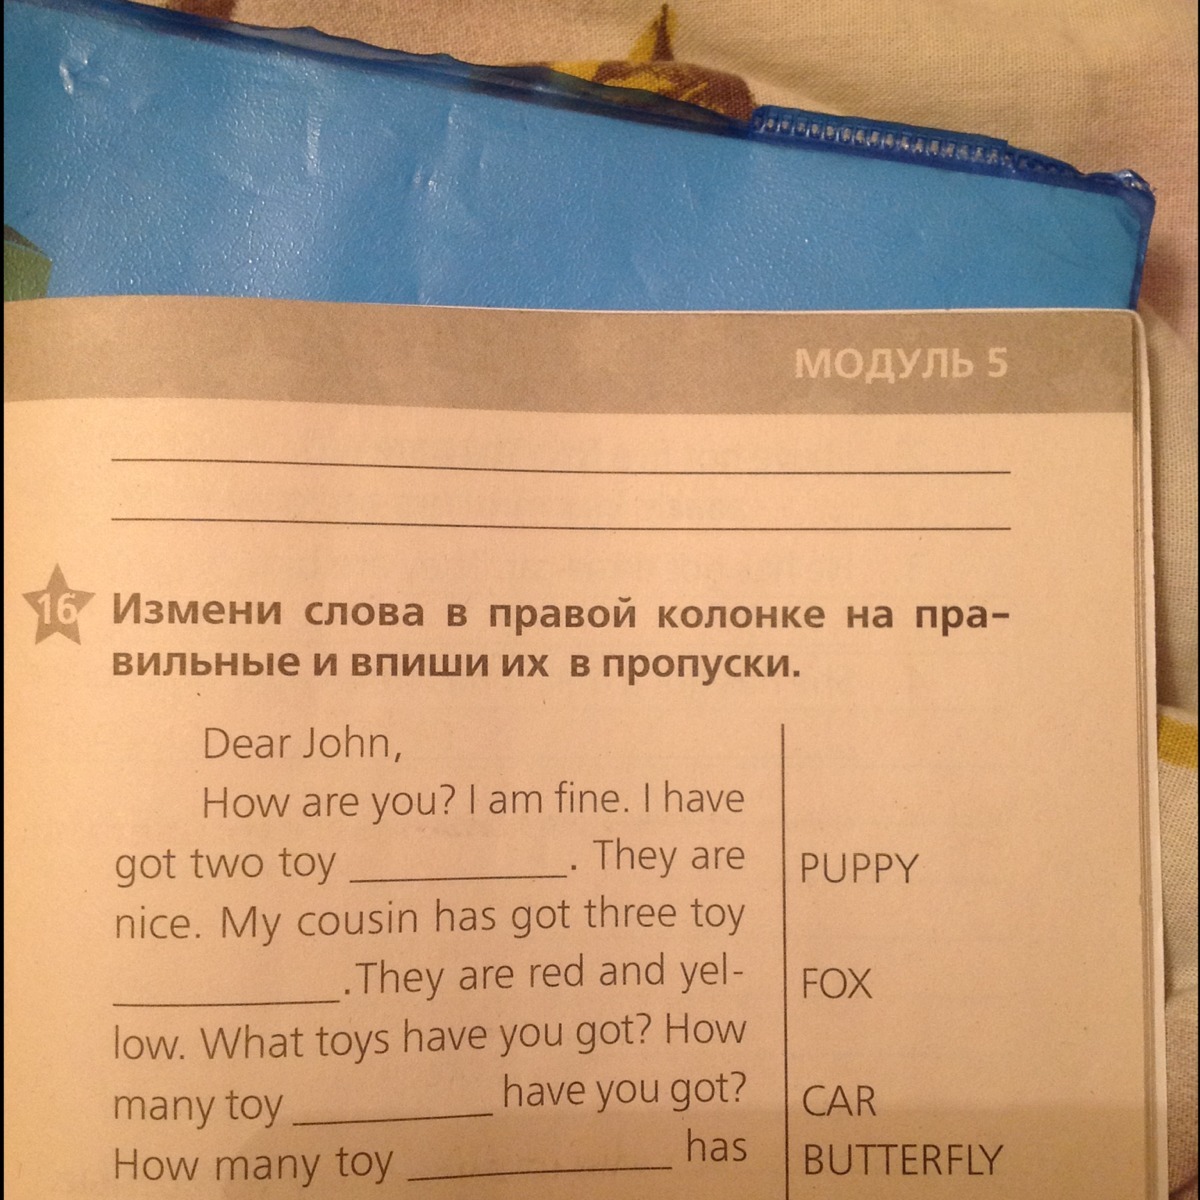 МОДУЛЬ 5
16 Измени слова в правой колонке на пра-
вильные и впиши их в пропуски.
Dear John,
How are you? I am fine. I have
got two toy __________. They are PUPPY
nice. My cousin has got three toy
__________.They are red and yel- FOX
low. What toys have you got? How
many toy __________ have you got? CAR
How many toy __________ has BUTTERFLY